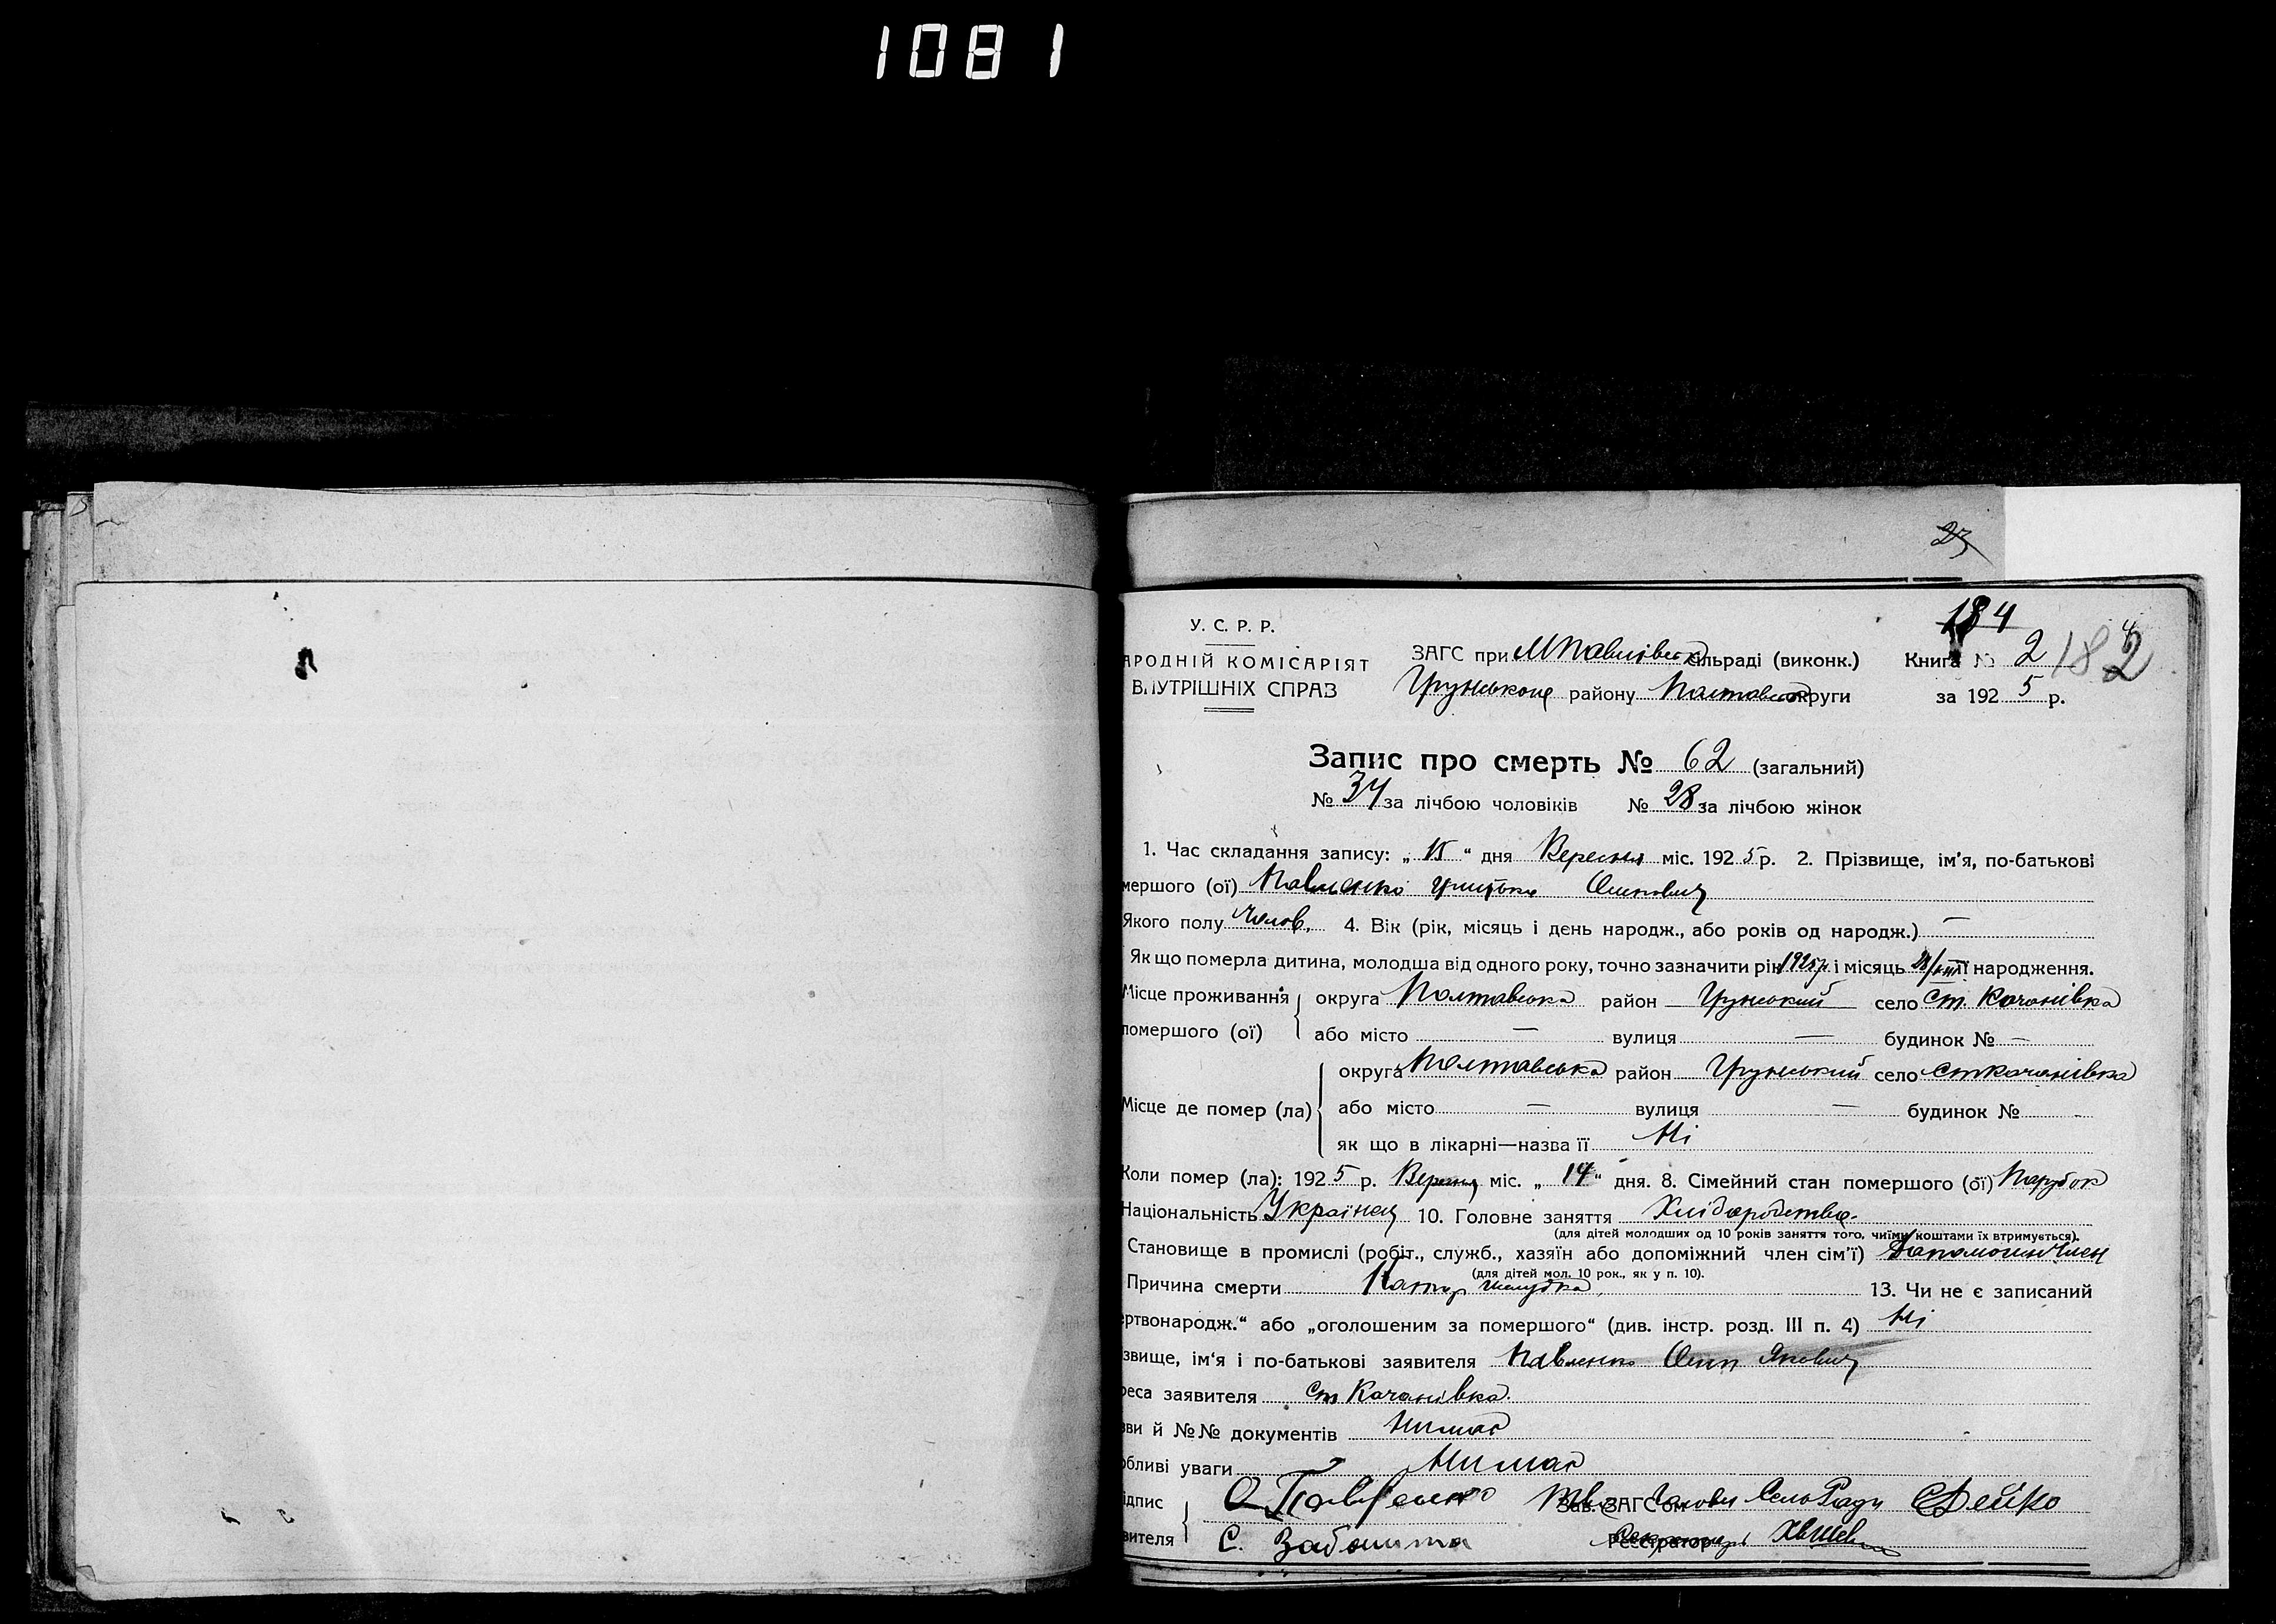 1081
23
184
У. С. Р. Р.
АРОДНІЙ КОМІСАРІЯТ
ВНУТРІШНІХ СПРАВ
ЗАГС при МПавлівськ сільраді (виконк.) Книга № 2 182
Грунського району Полтавськ округи за 1925 р.
Запис про смерть № 62 (загальний)
№ 34 за лічбою чоловіків № 28 за лічбою жінок
1. Час складання запису: „15“ дня Вересня міс. 1925 р. 2. Прізвище, ім'я, по-батькові
мершого (ої) Павленко Грицько Осипович
Якого полу Чолов. 4. Вік (рік, місяць і день народж., або років од народж.) —
Як що померла дитина, молодша від одного року, точно зазначити рік 1925р. і місяць її народження.
Місце проживання округа Полтавська район Грунський село Ст. Качанівка
помершого (ої) або місто — вулиця — будинок № —
округа Полтавська район Грунський село ст Качанівка
Місце де помер (ла) або місто — вулиця — будинок № -
як що в лікарні—назва її Ні
Коли помер (ла): 1925 р. Вересня міс. „14“ дня. 8. Сімейний стан помершого (ої) Парубок
Національність Українец 10. Головне заняття Хліборобство
(для дітей молодших од 10 років заняття того, чиїми коштами їх втримується).
Становище в промислі (робіт., служб., хазяїн або допоміжний член сім'ї) Член
(для дітей мол. 10 рок., як у п. 10).
Причина смерти Катар желудка 13. Чи не є записаний
ертвонародж.“ або „оголошеним за помершого“ (див. інстр. розд. III п. 4) Ні
звище, ім'я і по-батькові заявителя Павленко Осип Якович
реса заявителя Ст Качанівка.
зви й №№ документів Нимає
обливі уваги Нимає
ідпис О Павленко Зав. ЗАГС'ом Голови СельРади Дейко
вителя С. Забошта Реєстратор